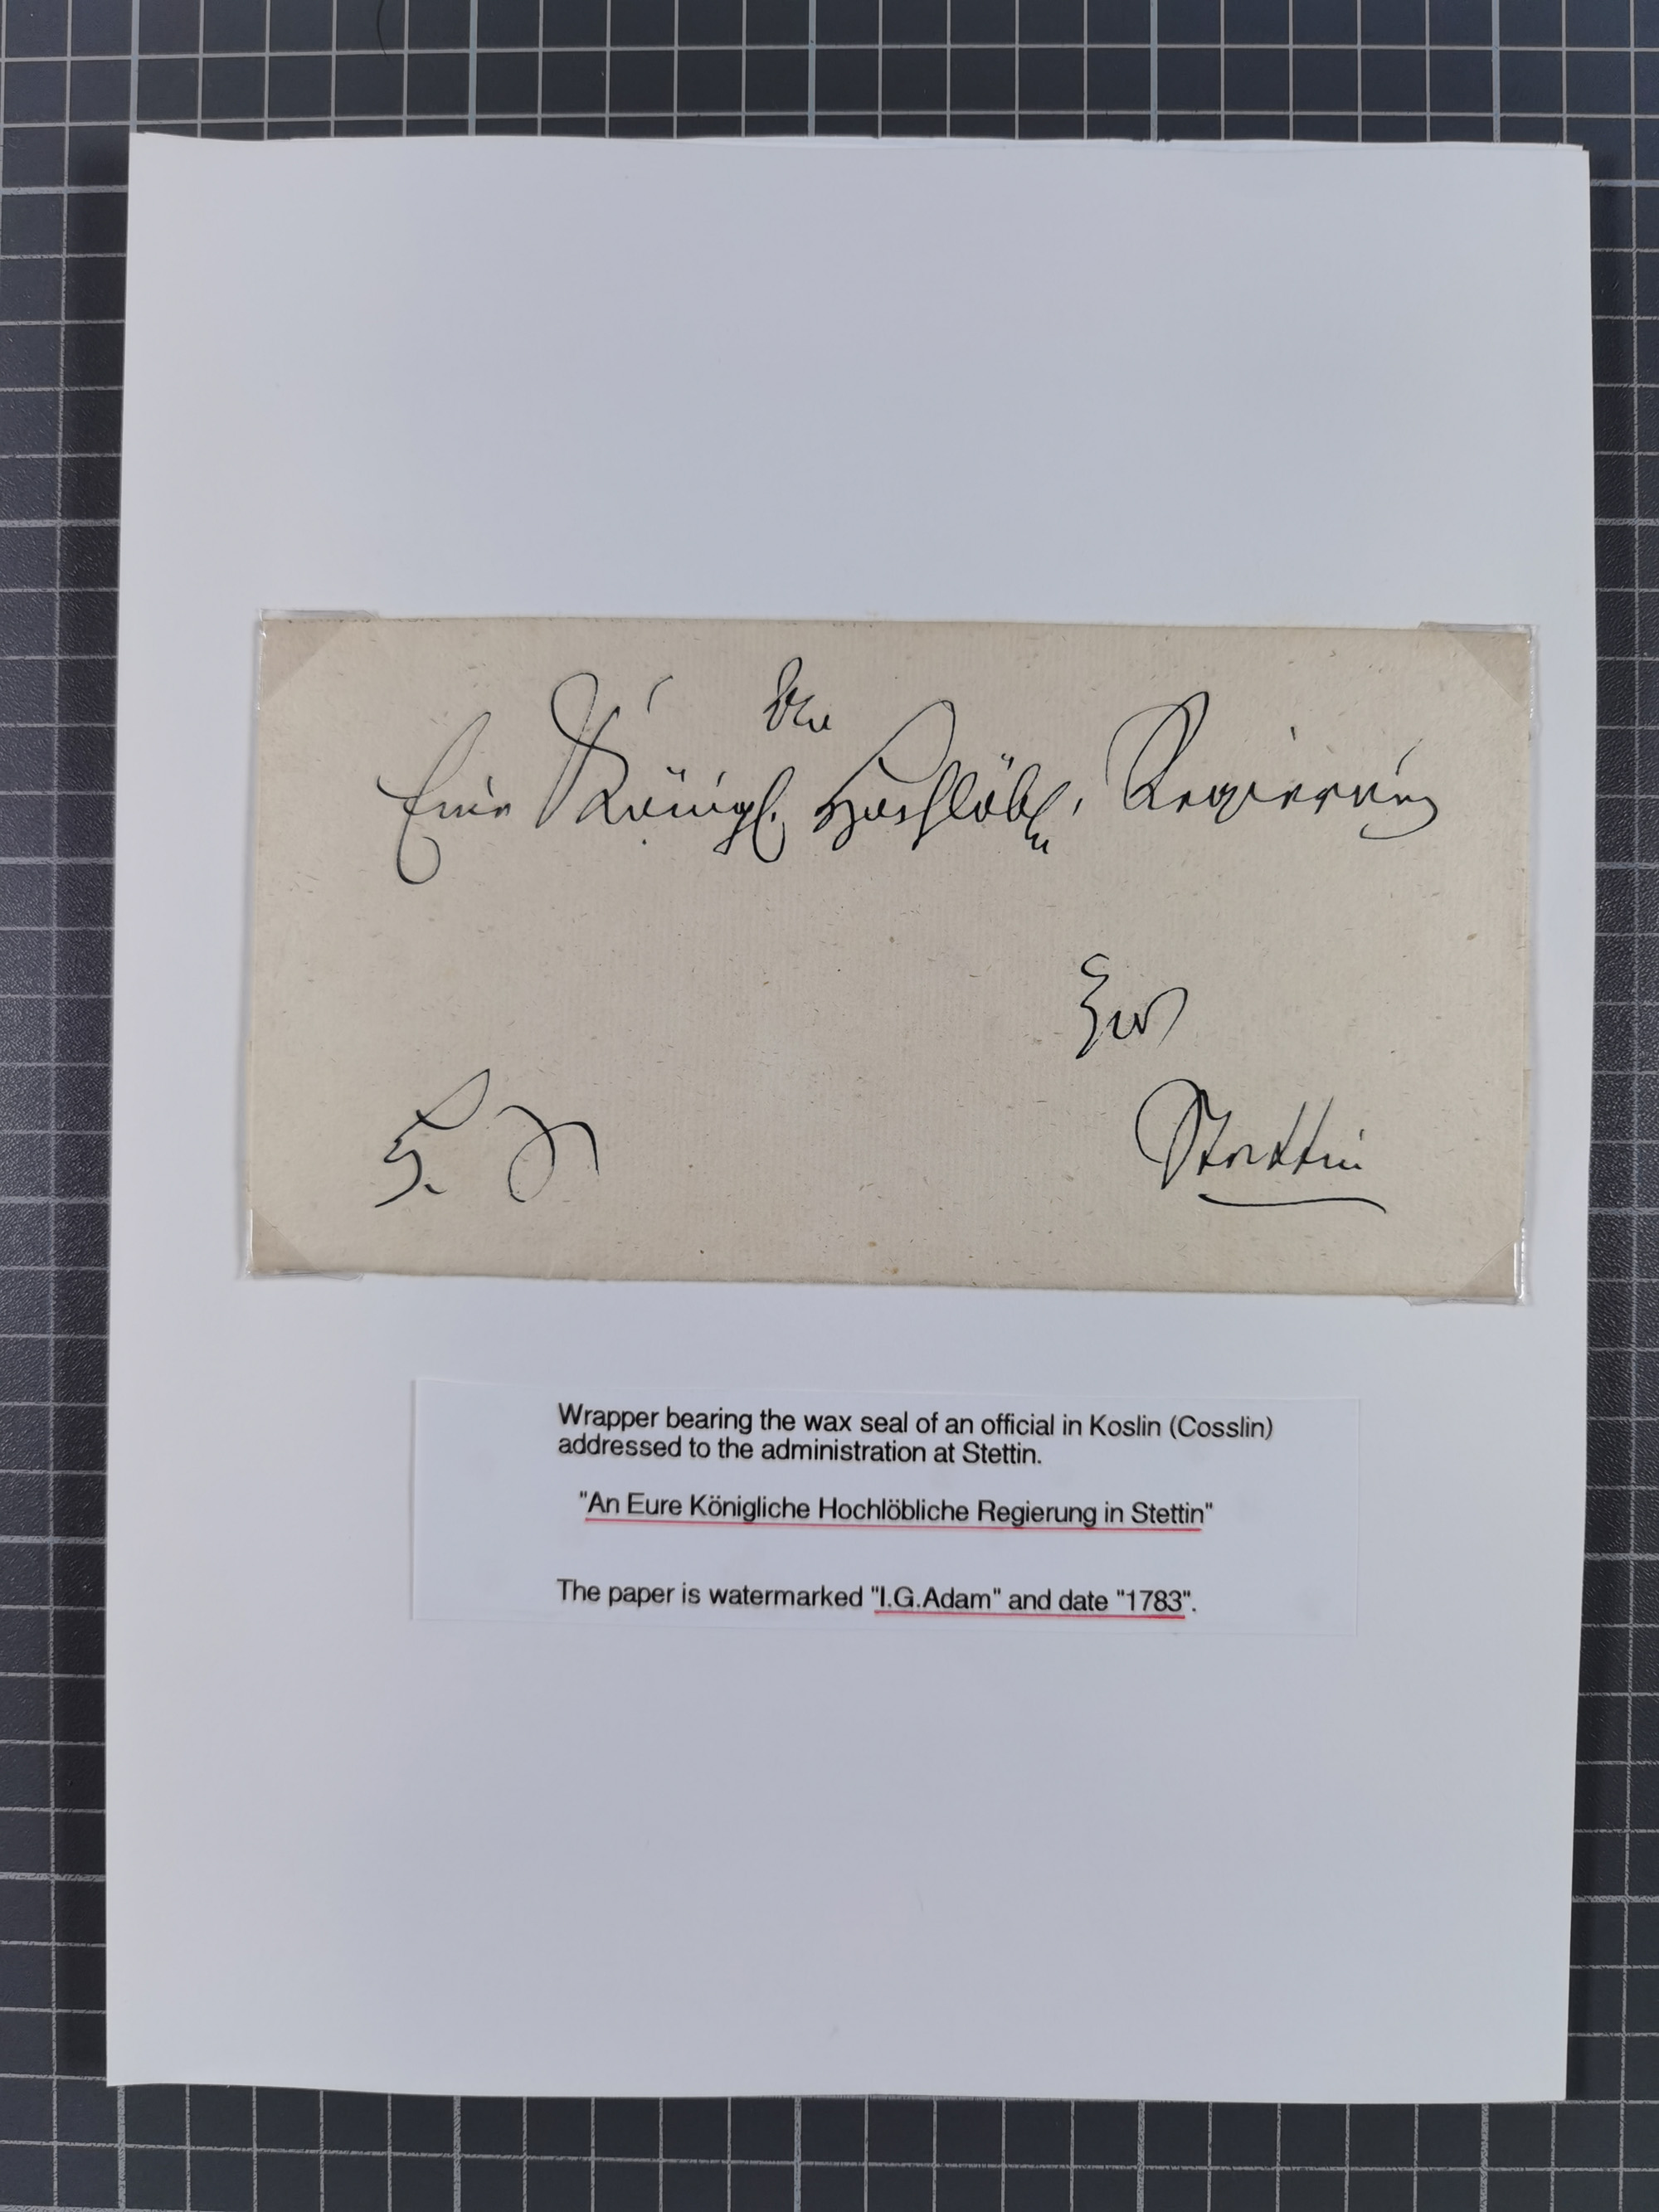 An
Eine Königl. Hochlöbl. Regierung
Zu
Stettin
Wrapper bearing the wax seal of an official in Koslin (Cosslin)
addressed to the administration at Stettin.
"An Eure Königliche Hochlöbliche Regierung in Stettin"
The paper is watermarked "I.G.Adam" and date "1783".